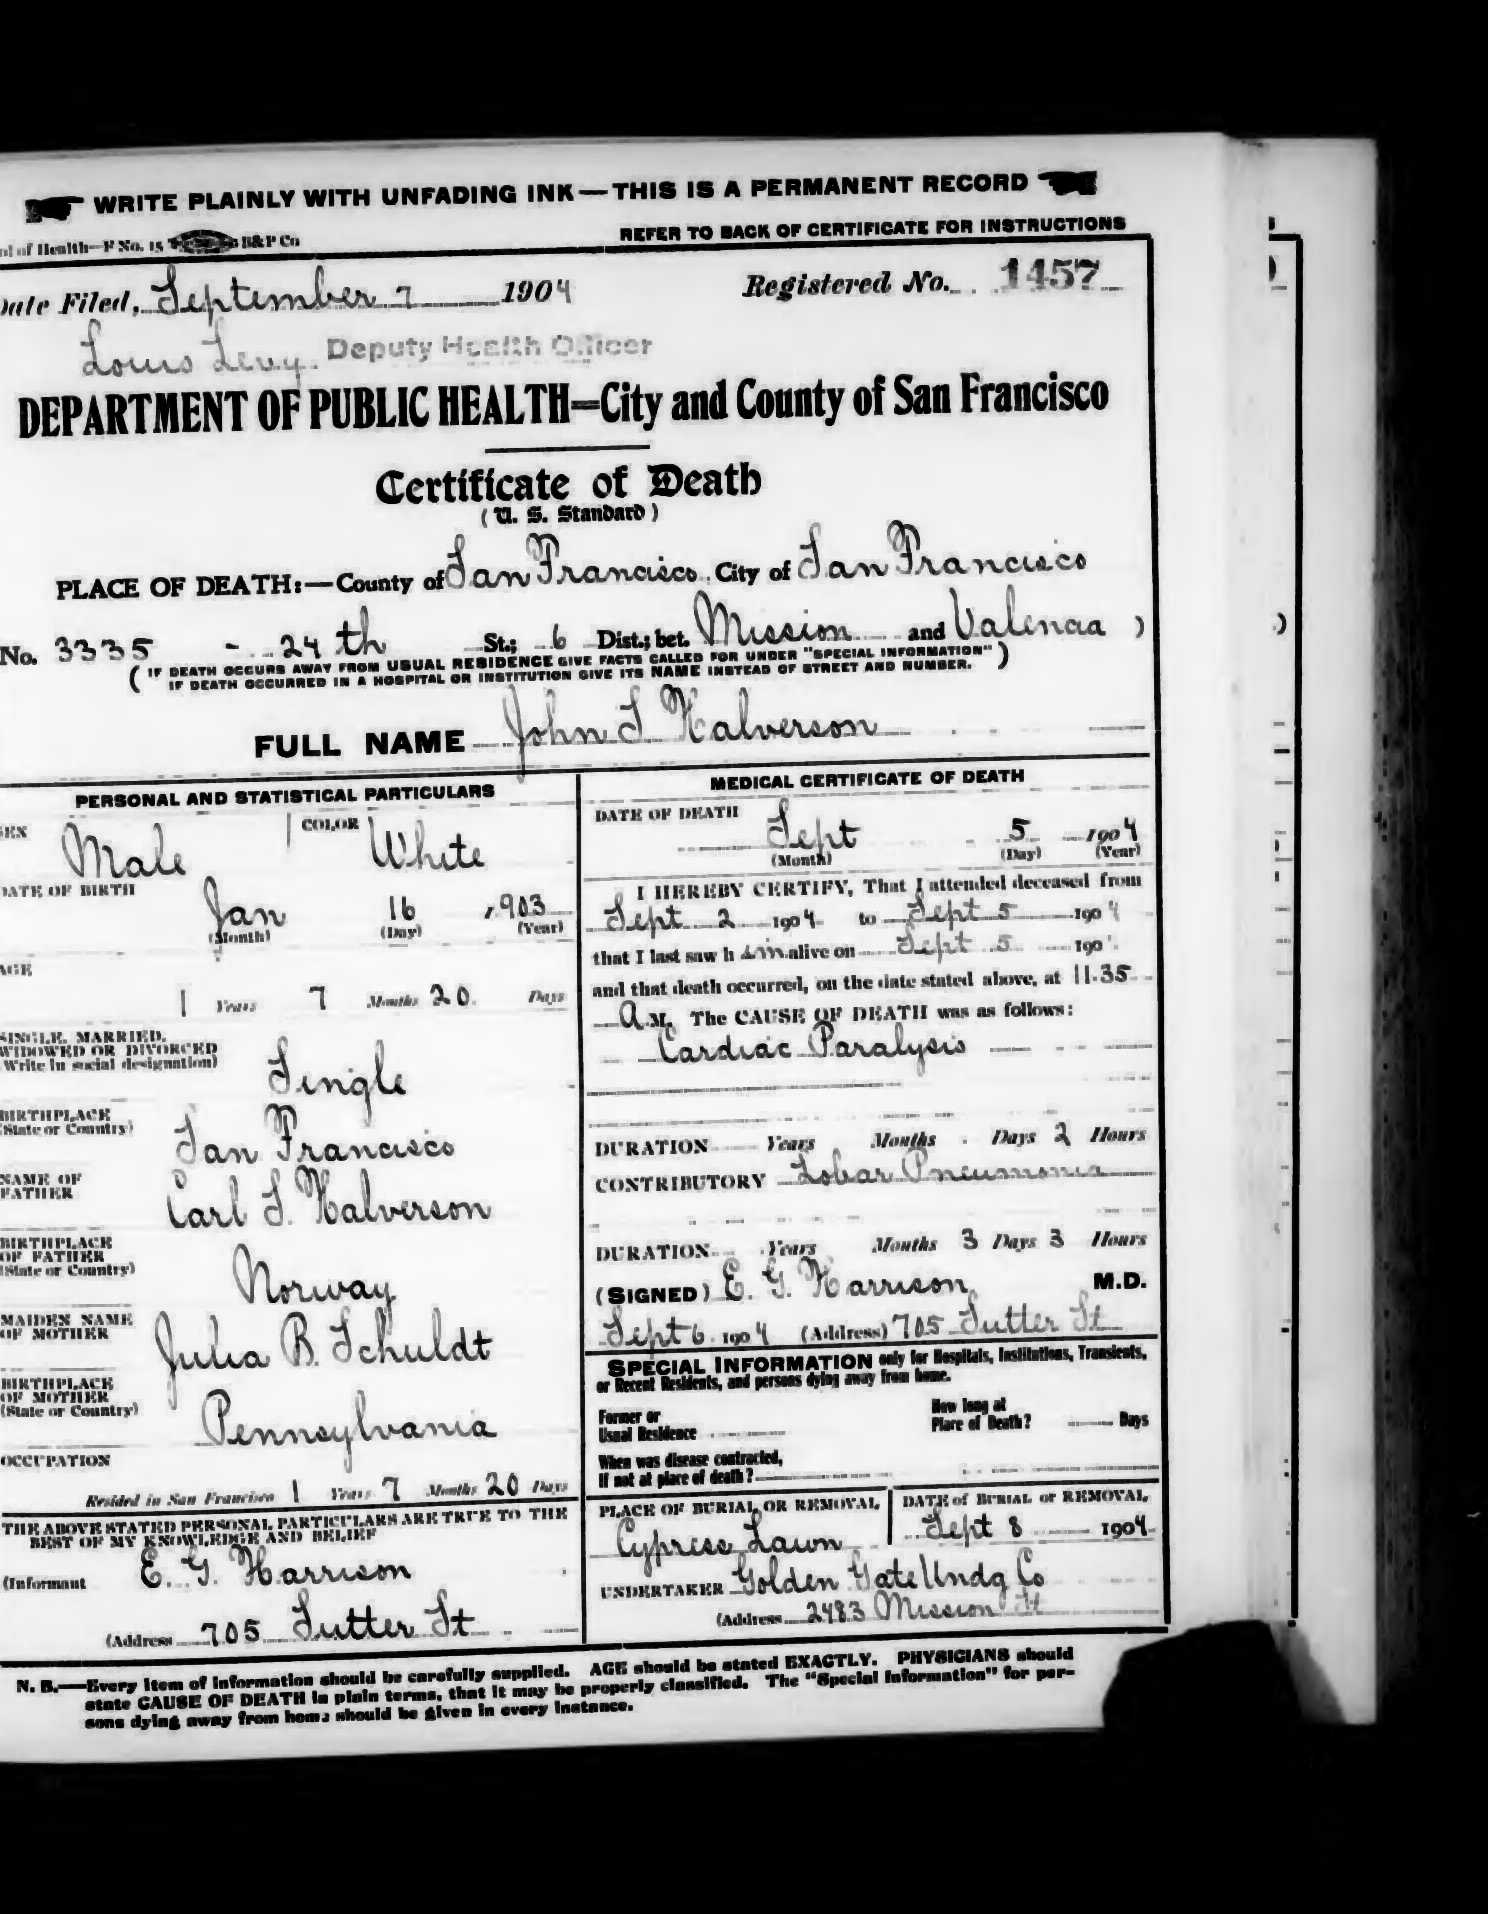 WRITE PLAINLY WITH UNFADING INK—THIS IS A PERMANENT RECORD
of Health—F No. 15 B&P Co
REFER TO BACK OF CERTIFICATE FOR INSTRUCTIONS
Date Filed, September 7 1904
Registered No. 1457
Louis Levy. Deputy Health Officer
DEPARTMENT OF PUBLIC HEALTH=City and County of San Francisco
Certificate of Death
(U. S. Standard)
PLACE OF DEATH:—County of San Francisco, City of San Francisco
No. 3335 - 24th St.; 6 Dist.; bet. Mission and Valencia )
( IF DEATH OCCURS AWAY FROM USUAL RESIDENCE GIVE FACTS CALLED FOR UNDER "SPECIAL INFORMATION" )
IF DEATH OCCURRED IN A HOSPITAL OR INSTITUTION GIVE ITS NAME INSTEAD OF STREET AND NUMBER.
FULL NAME John S Halverson
PERSONAL AND STATISTICAL PARTICULARS
SEX Male COLOR White
DATE OF BIRTH
Jan 16 1903
(Month) (Day) (Year)
AGE
1 Years 7 Months 20 Days
SINGLE, MARRIED,
WIDOWED OR DIVORCED
(Write in social designation)
Single
BIRTHPLACE
(State or Country)
San Francisco
NAME OF
FATHER
Carl S. Halverson
BIRTHPLACE
OF FATHER
(State or Country)
Norway
MAIDEN NAME
OF MOTHER
Julia B. Schuldt
BIRTHPLACE
OF MOTHER
(State or Country)
Pennsylvania
OCCUPATION
Resided in San Francisco 1 Years 7 Months 20 Days
THE ABOVE STATED PERSONAL PARTICULARS ARE TRUE TO THE
BEST OF MY KNOWLEDGE AND BELIEF
(Informant E. G. Harrison
(Address 705 Sutter St
MEDICAL CERTIFICATE OF DEATH
DATE OF DEATH
Sept 5 1904
(Month) (Day) (Year)
I HEREBY CERTIFY, That I attended deceased from
Sept 2 1904 to Sept 5 1904
that I last saw h im alive on Sept 5 190
and that death occurred, on the date stated above, at 11.35
A.M. The CAUSE OF DEATH was as follows:
Cardiac Paralysis
DURATION Years Months Days 2 Hours
CONTRIBUTORY Lobar Pneumonia
DURATION Years Months 3 Days 3 Hours
(SIGNED) E. G. Harrison M.D.
Sept 6 1904 (Address) 705 Sutter St
SPECIAL INFORMATION only for Hospitals, Institutions, Transients,
or Recent Residents, and persons dying away from home.
Former or
Usual Residence
How long at
Place of Death? Days
When was disease contracted,
If not at place of death?
PLACE OF BURIAL OR REMOVAL
Cypress Lawn
DATE of BURIAL or REMOVAL
Sept 8 1904
UNDERTAKER Golden Gate Undg Co
(Address 2483 Mission St
N. B.—Every item of information should be carefully supplied. AGE should be stated EXACTLY. PHYSICIANS should
state CAUSE OF DEATH in plain terms, that it may be properly classified. The "Special Information" for per-
sons dying away from home should be given in every instance.